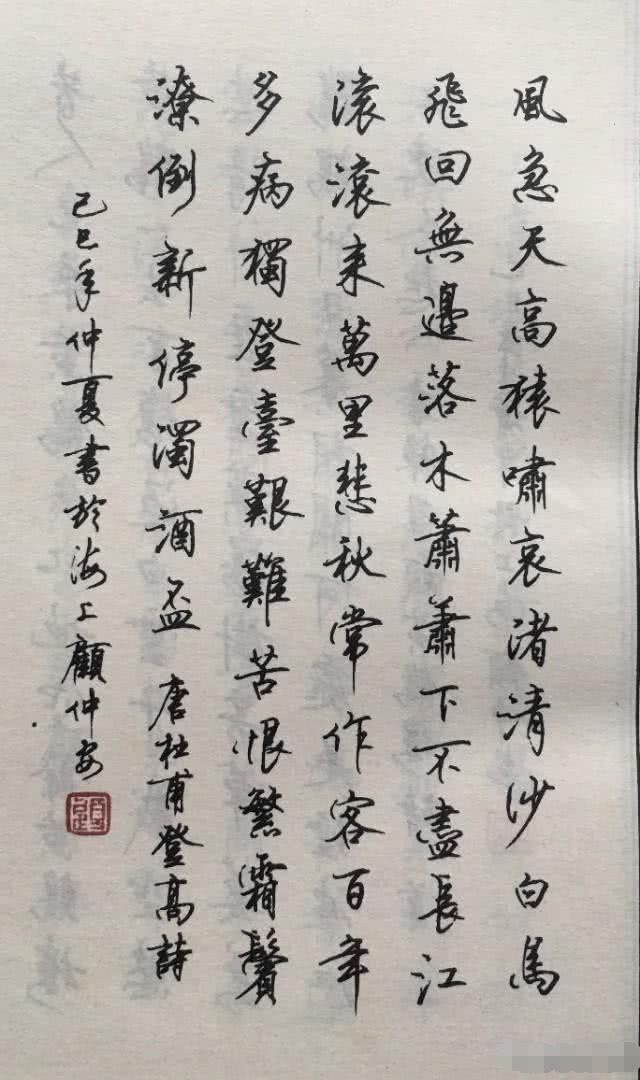 風急天高猿嘯哀渚清沙白鳥
飛回無邊落木蕭蕭下不盡長江
滾滾来萬里悲秋常作客百年
多病獨登臺艱難苦恨繁霜鬢
潦倒新停濁酒盃 唐杜甫登高詩
己巳年仲夏書於海上顧仲安